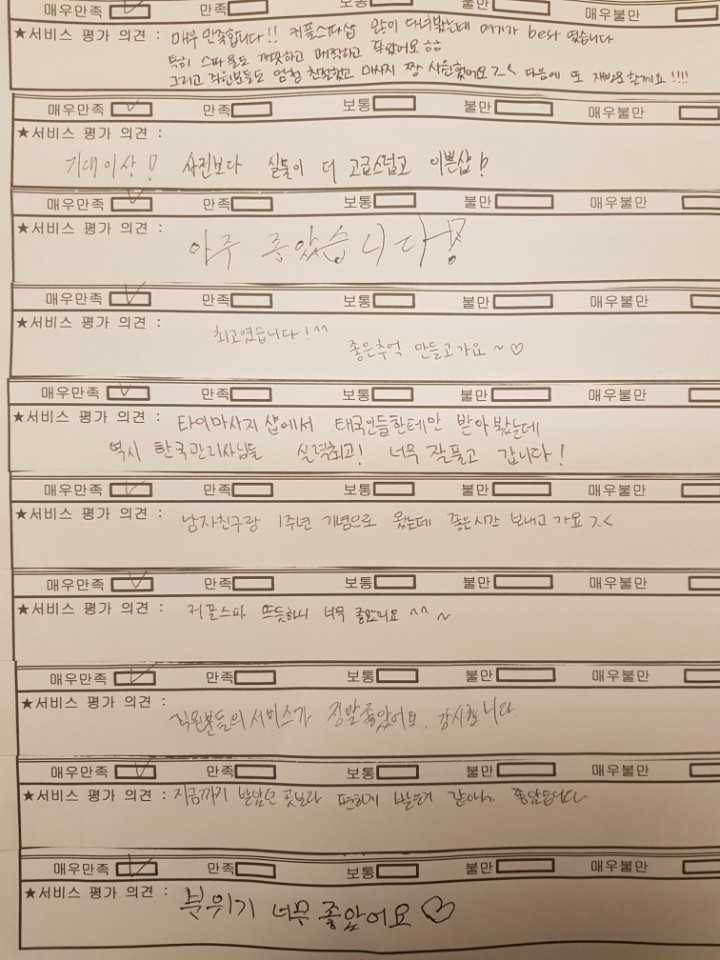 매우만족 만족 보통 불만 매우불만
★서비스 평가 의견 : 매우 만족합니다!! 커플스파샵 많이 다녀봤는데 여기가 best 였습니다
특히 스파룸도 깨끗하고 쾌적하고 좋았어요 ㅎㅎ
그리고 직원분들도 엄청 친절했고 마사지 짱 시원했어요 >.< 다음에 또 재방문할게요 !!!!
매우만족 만족 보통 불만 매우불만
★서비스 평가 의견 :
기대이상! 사진보다 실물이 더 고급스럽고 이쁜샵!
매우만족 만족 보통 불만 매우불만
★서비스 평가 의견 :
아주 좋았습니다!
매우만족 만족 보통 불만 매우불만
★서비스 평가 의견 :
최고였습니다!^^
좋은추억 만들고가요 ~♡
매우만족 만족 보통 불만 매우불만
★서비스 평가 의견 : 타이마사지샵에서 태국인들한테만 받아봤는데
역시 한국관리사님들 실력최고! 너무 잘풀고 갑니다!
매우만족 만족 보통 불만 매우불만
★서비스 평가 의견 : 남자친구랑 1주년 기념으로 왔는데 좋은시간 보내고 가요 >.<
매우만족 만족 보통 불만 매우불만
★서비스 평가 의견 : 커플스파 뜨듯하니 너무 좋았어요 ^^ ~
매우만족 만족 보통 불만 매우불만
★서비스 평가 의견 :
직원분들의 서비스가 정말좋았어요. 감사합니다.
매우만족 만족 보통 불만 매우불만
★서비스 평가 의견 : 지금까지 받았던 곳보다 편하게 받은거 같아서 좋았습니다
매우만족 만족 보통 불만 매우불만
★서비스 평가 의견 :
분위기 너무 좋았어요 ♡